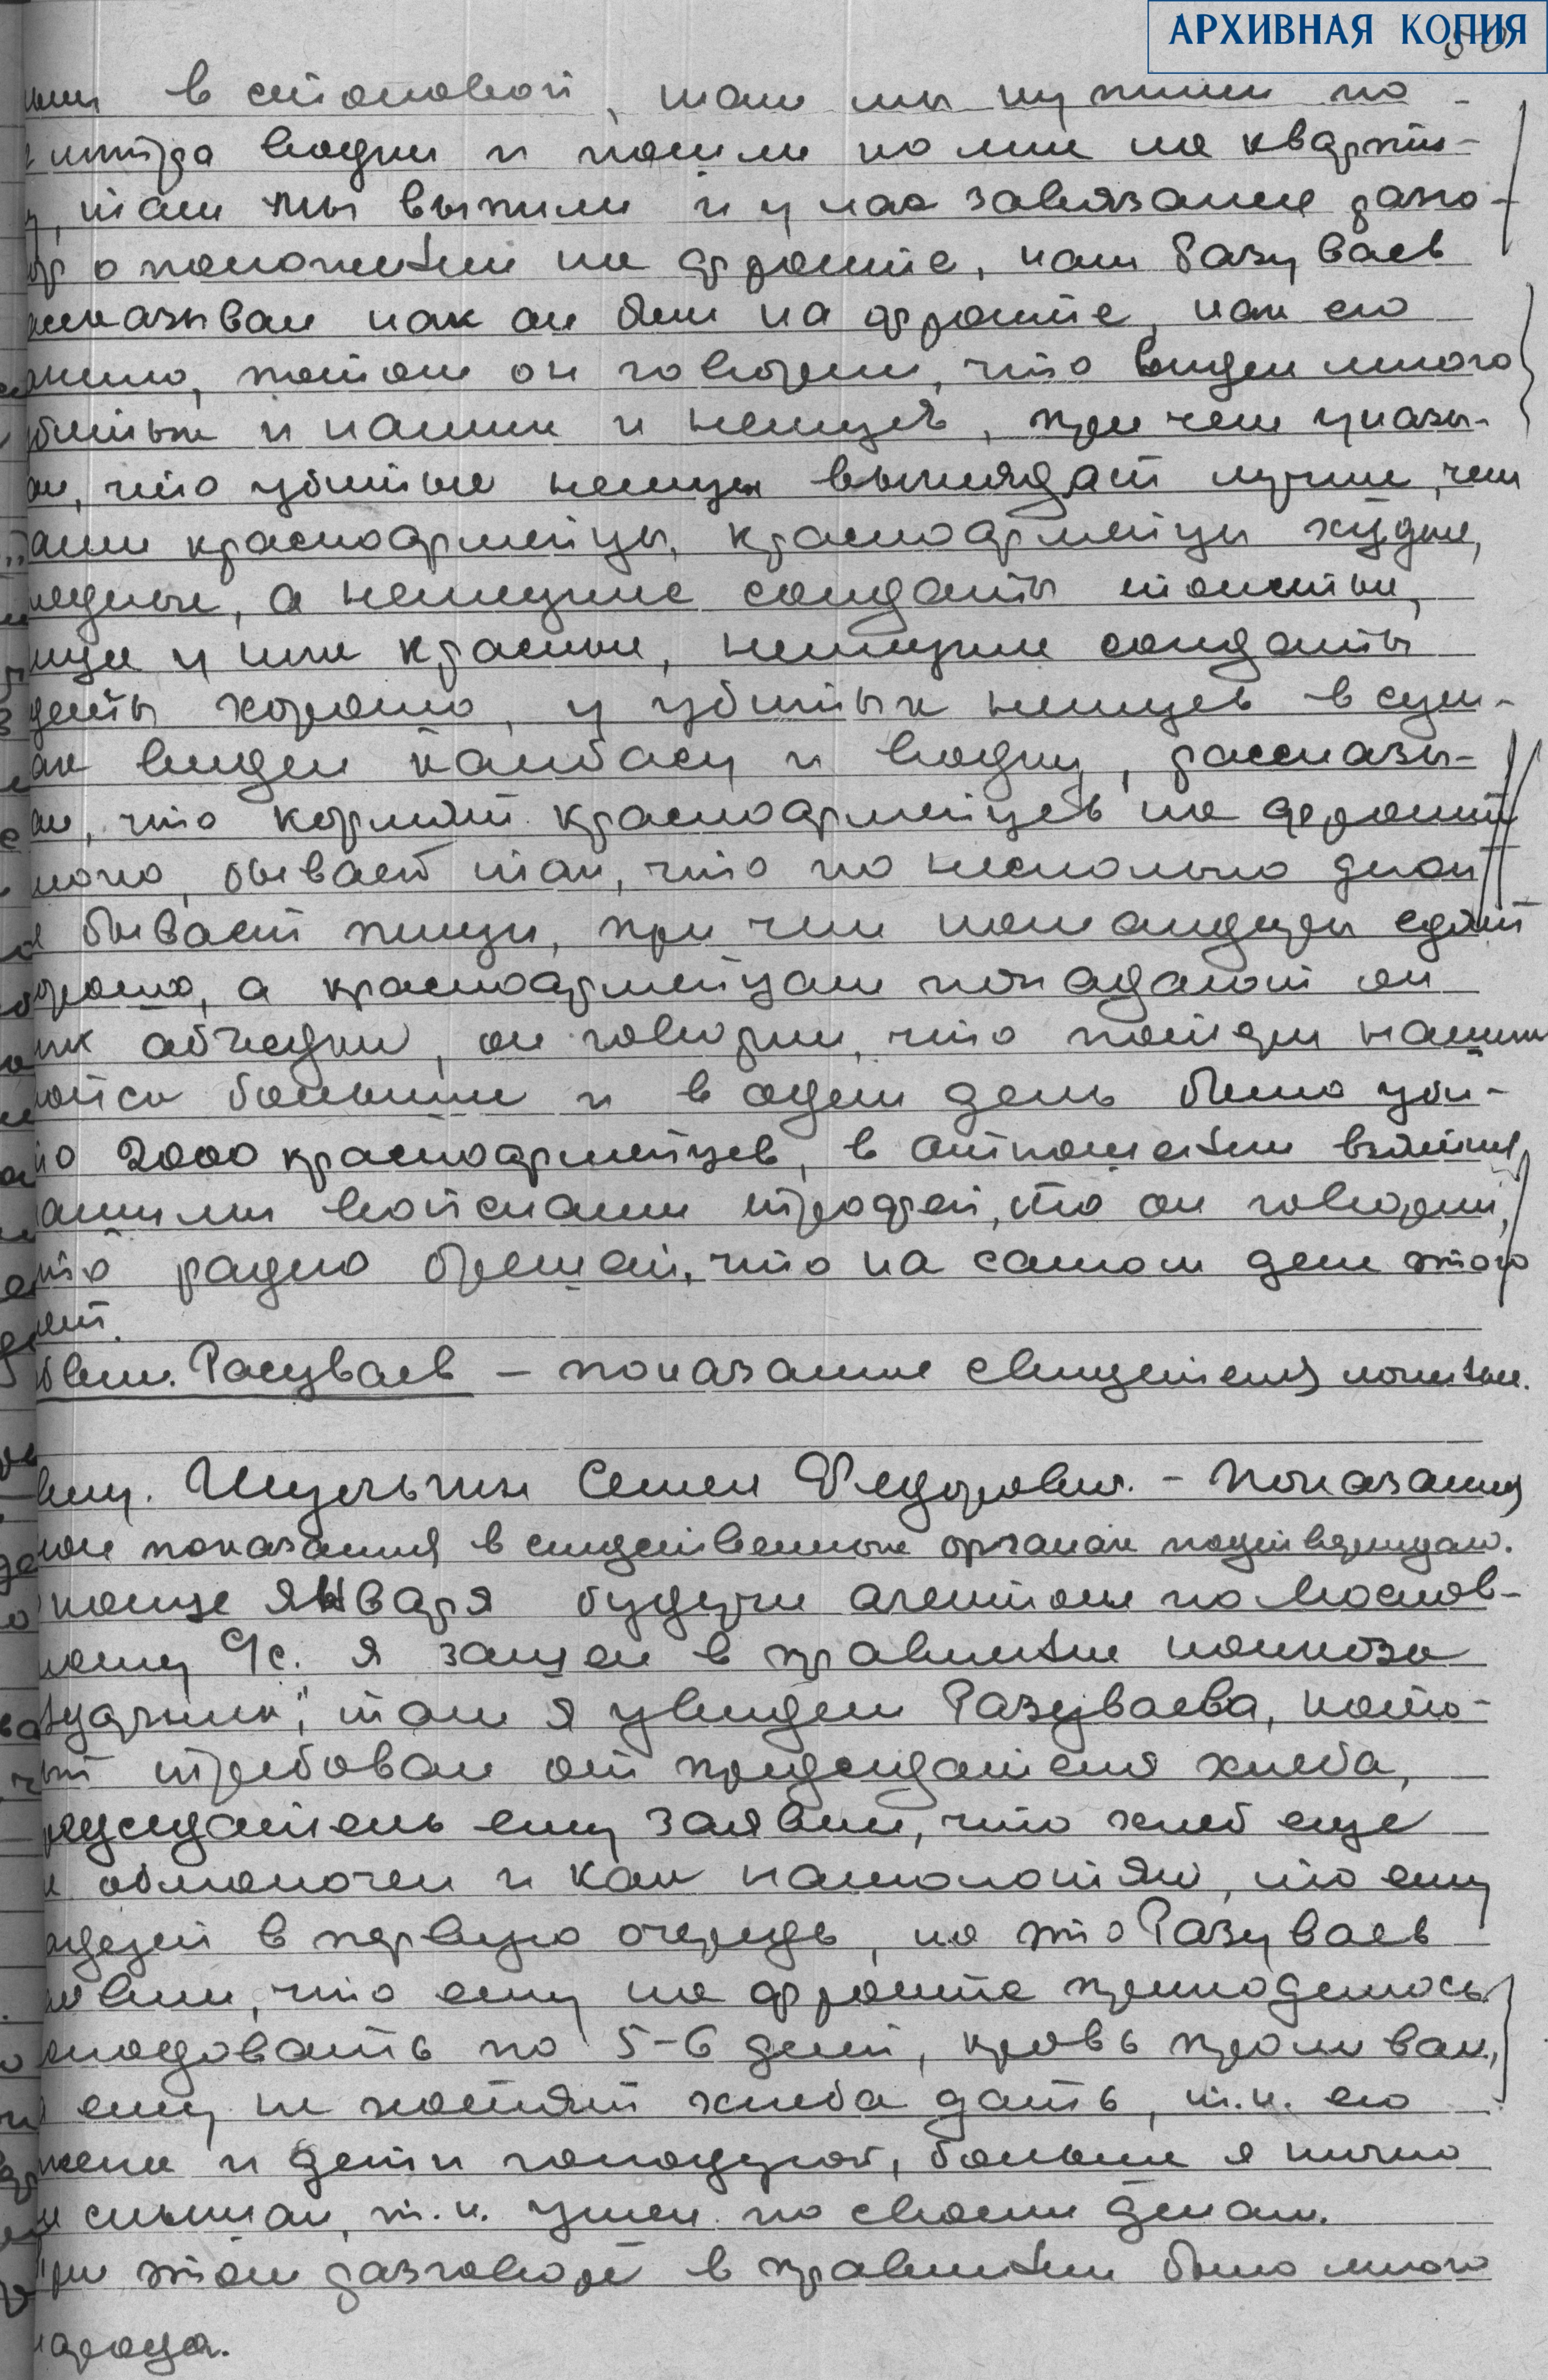 АРХИВНАЯ КОПИЯ
в столовой, там мы купили по
литра водки и пошли ко мне на кварти-
там мы выпили и у нас завязался разго-
о положении на фронте, нам Разуваев
сказывал как он был на фронте, как его
, потом он говорил, что видел много
убитых и наших и немцев, при чем указы-
ал, что убитые немцы выглядят лучше, чем
наши красноармейцы, красноармейцы худые,
бледные, а немецкие солдаты толстые,
лица у них красные, немецкие солдаты
одеты хорошо, у убитых немцев в сум-
ках видел колбасу и водку, рассказы-
ал, что кормят красноармейцев на фронте
плохо, бывает так, что по несколько дней
не бывает пищи, при чем командиры едят
хорошо, а красноармейцам попадают от
них объедки, он говорил, что потери наших
войск большие и в один день было уби-
то 2000 красноармейцев, в отношении взятых
нашими войсками трофей, то он говорил,
что радио брешет, что на самом деле этого
нет.
Обвин. Разуваев – показание свидетеля
Щ Семен Федорович. – Показания
мои показания в следственных органах подтверждаю.
конце января будучи агентом по
кому с/с. я зашел в правление колхоза
"Ударник", там я увидел Разуваева, кото-
рый требовал от председателя хлеба,
председатель ему заявил, что хлеб еще
не обмолочен и как намолотят, то ему
дадут в первую очередь, на это Разуваев
заявил, что ему на фронте приходилось
голодовать по 5-6 дней, кровь проливал,
а ему не хотят хлеба дать, т.к. его
жена и дети голодуют, больше я ничего
не слышал, т.к. ушел по своим делам.
При этом разговоре в правлении было много
народа.